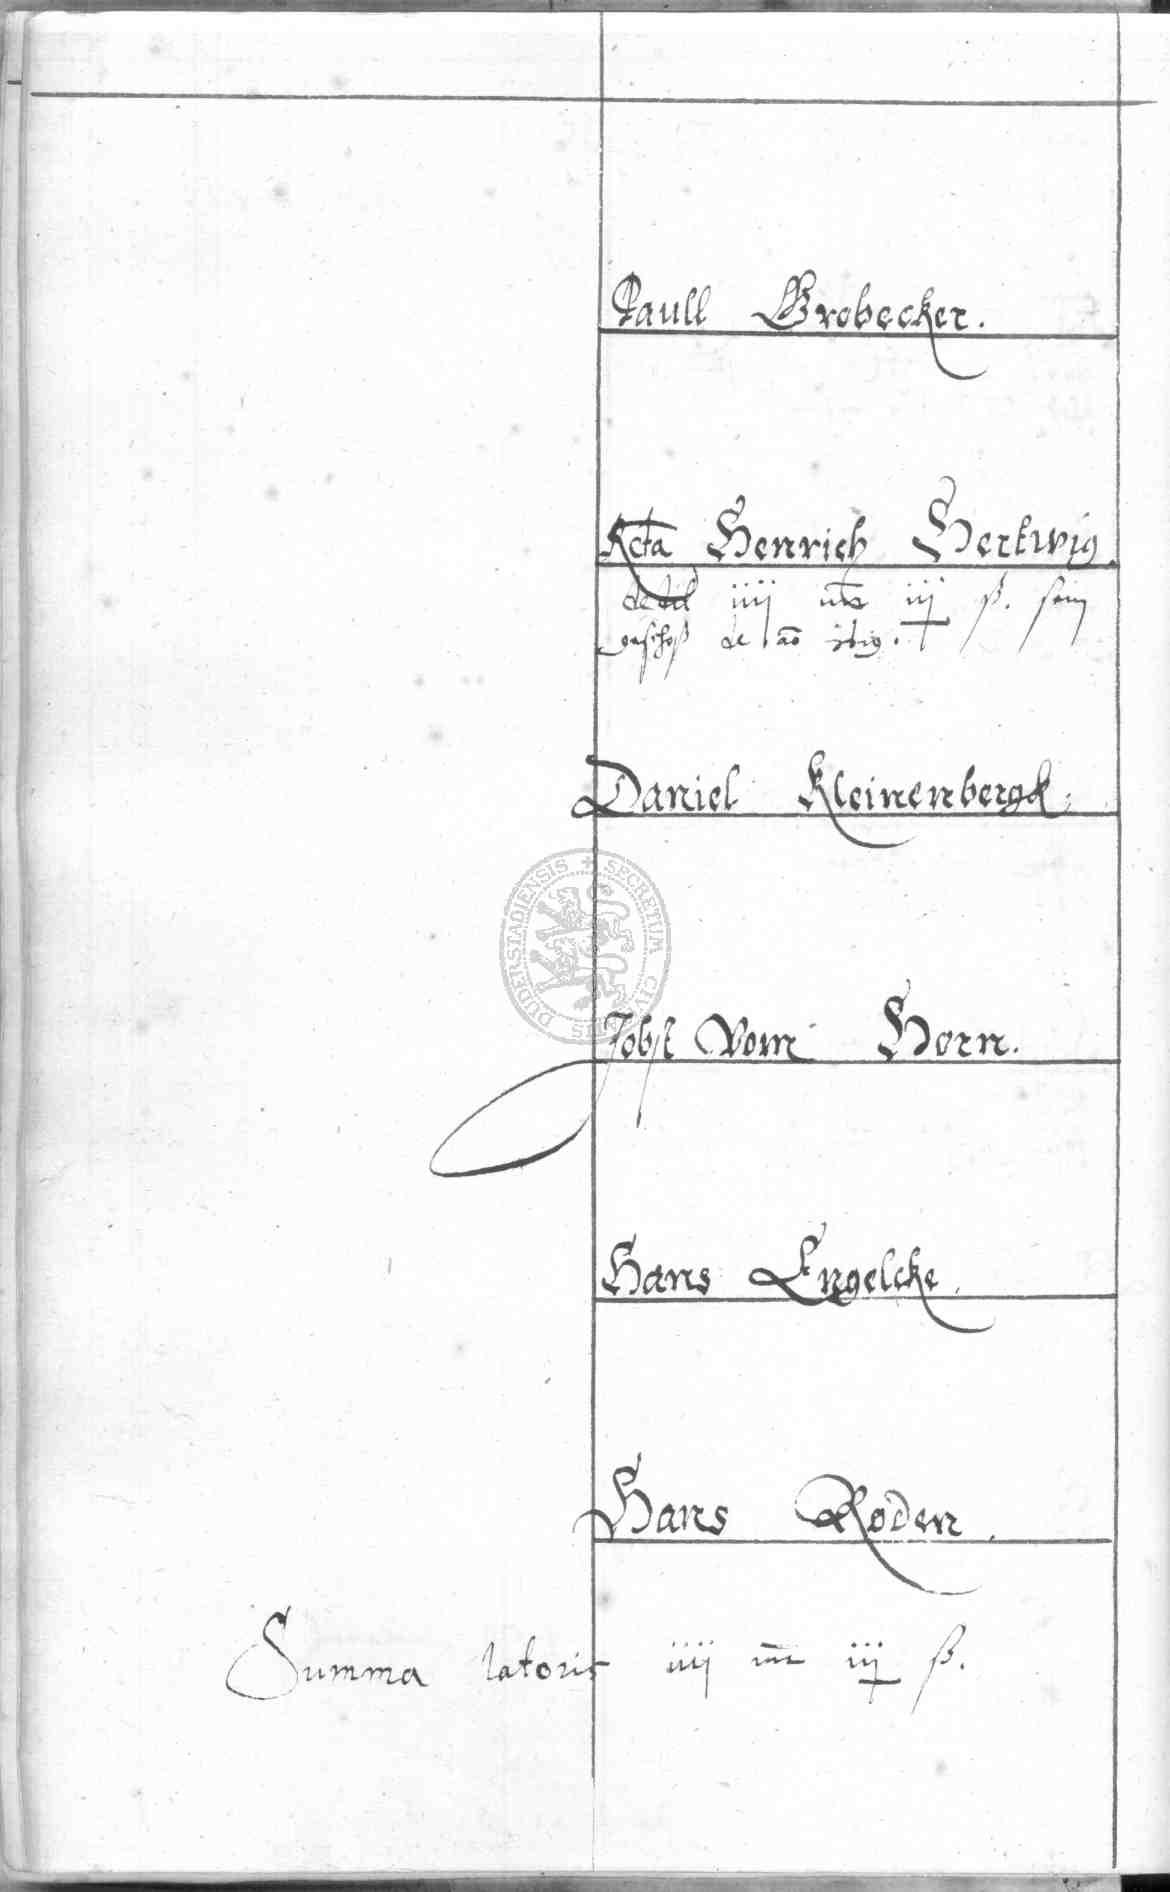 Paull Grobecker.
Rcta Henrich Hertwig.
dedit iiij mr iij ß. sein
geschoß de ao
Daniel Kleinenbergk.
SECRETUM CIVITATIS DUDERSTADIENSIS
Jobst Vom Horn.
Hans Engelcke.
Hans Roden.
Summa lateris iiij mr iij ß.